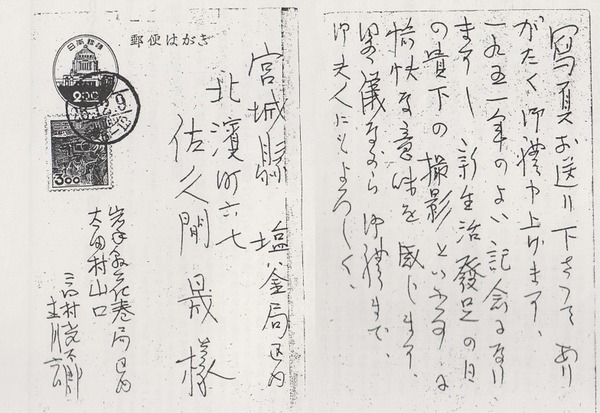 郵便はがき
日本郵便
200
300
宮城縣 塩釜局区内
北濱町六七
佐久間 晟 様
岩手縣花巻局区内
太田村山口
高村光太郎
寫真お送り下さつてあり
がたく御禮申上げます、
一九五一年のよい記念になり
ますし 新生活發足の日
の貴下の撮影といふすな
愉快な意味を感じます、
略儀ながら御禮まで、
御夫人にもよろしく、